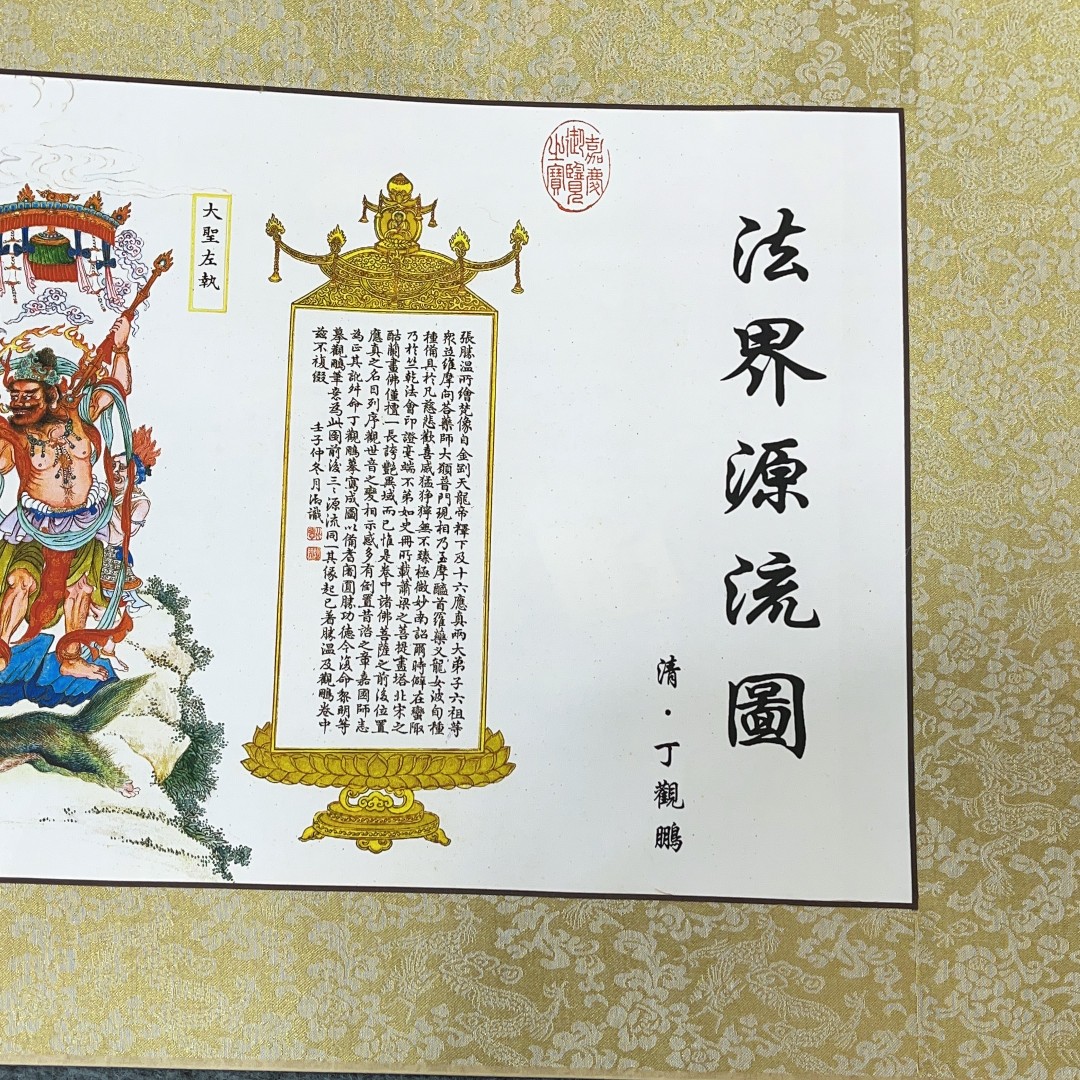 法界源流圖
清·丁觀鵬
嘉慶御覽之寶
張勝温所繪梵像自金剛天龍帝釋下及十六應真兩大弟子六祖等
衆並維摩問答藥師大願普門現相乃至摩醯首羅藥叉龍女波旬種
種備具於凡慈悲歡喜威猛猙獰無不臻極微妙南詔爾時僻在蠻陬
乃於竺乾法會印證毫端不第如史冊所載蕭梁之菩提畫塔北宋之
酤蘭畫佛僅檀一長誇艷異域而已惟是卷中諸佛菩薩之前後位置
應真之名目列序觀世音之變相示感多有倒置昔誥之章嘉國師志
為正其訛舛命丁觀鵬摹寫成圖以備耆闍圓勝功德今復命黎明等
摹觀鵬筆為此圖前後三三源流同一其緣起已着勝温及觀鵬卷中
茲不複綴
壬子仲冬月御識
大聖左執